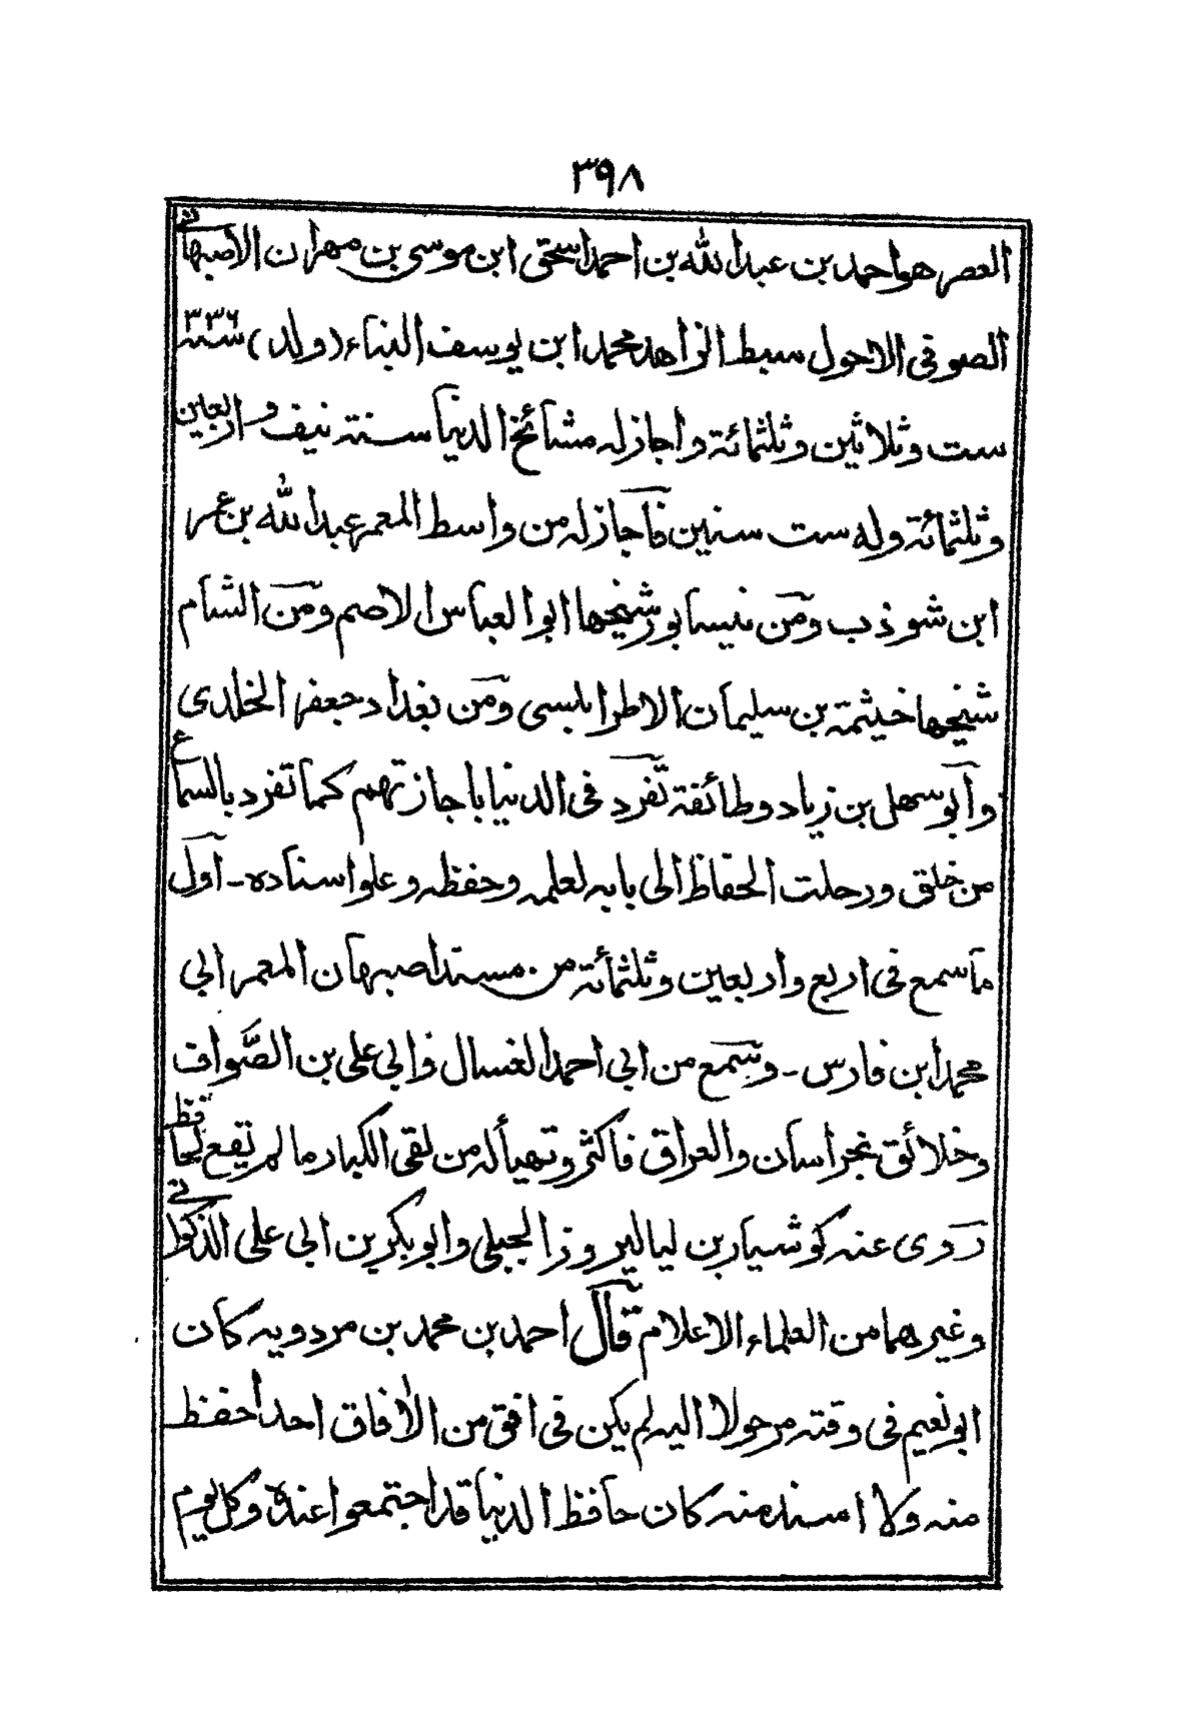 ٣٩٨
العصر هو احمد بن عبد الله بن احمد اسحٰق ابن موسى بن مهران الاصبهانى
الصوفى الاحول سبط الزاهد محمد ابن يوسف البناء (ولد) سنة ٣٣٦
ست وثلاثين وثلثمائة واجاز له مشائخ الدنيا سنة نيف واربعين
وثلثمائة وله ست سنين فاجاز له من واسط المعمر عبد الله بن عمر
ابن شوذب ومن نيسابور شيخها ابو العباس الاصم ومن الشام
شيخها خيثمة بن سليمان الاطرابلسى ومن بغداد جعفر الخلدى
وابو سهل بن زياد وطائفة تفرد فى الدنيا باجازتهم كما تفرد بالسماع
من خلق ورحلت الحفاظ الى بابه لعلمه وحفظه وعلو اسناده - اول
ما سمع فى اربع واربعين وثلثمائة من مسند اصبهان المعمر ابى
محمد ابن فارس - وسمع من ابى احمد العسال وابى على بن الصَّواف
وخلائق بخراسان والعراق فاكثر وتهيأ له من لقى الكبار ما لم يقع لحافظ
روى عنه كوشيار بن لياليروز الجبلى وابو بكر بن ابى على الذكوانى
وغيرهما من العلماء الاعلام قال احمد بن محمد بن مردويه كان
ابو نعيم فى وقته مرحولا اليه لم يكن فى افق من الآفاق احد احفظ
منه ولا اسند منه كان حافظ الدنيا قد اجتمعوا عنده وكل يوم